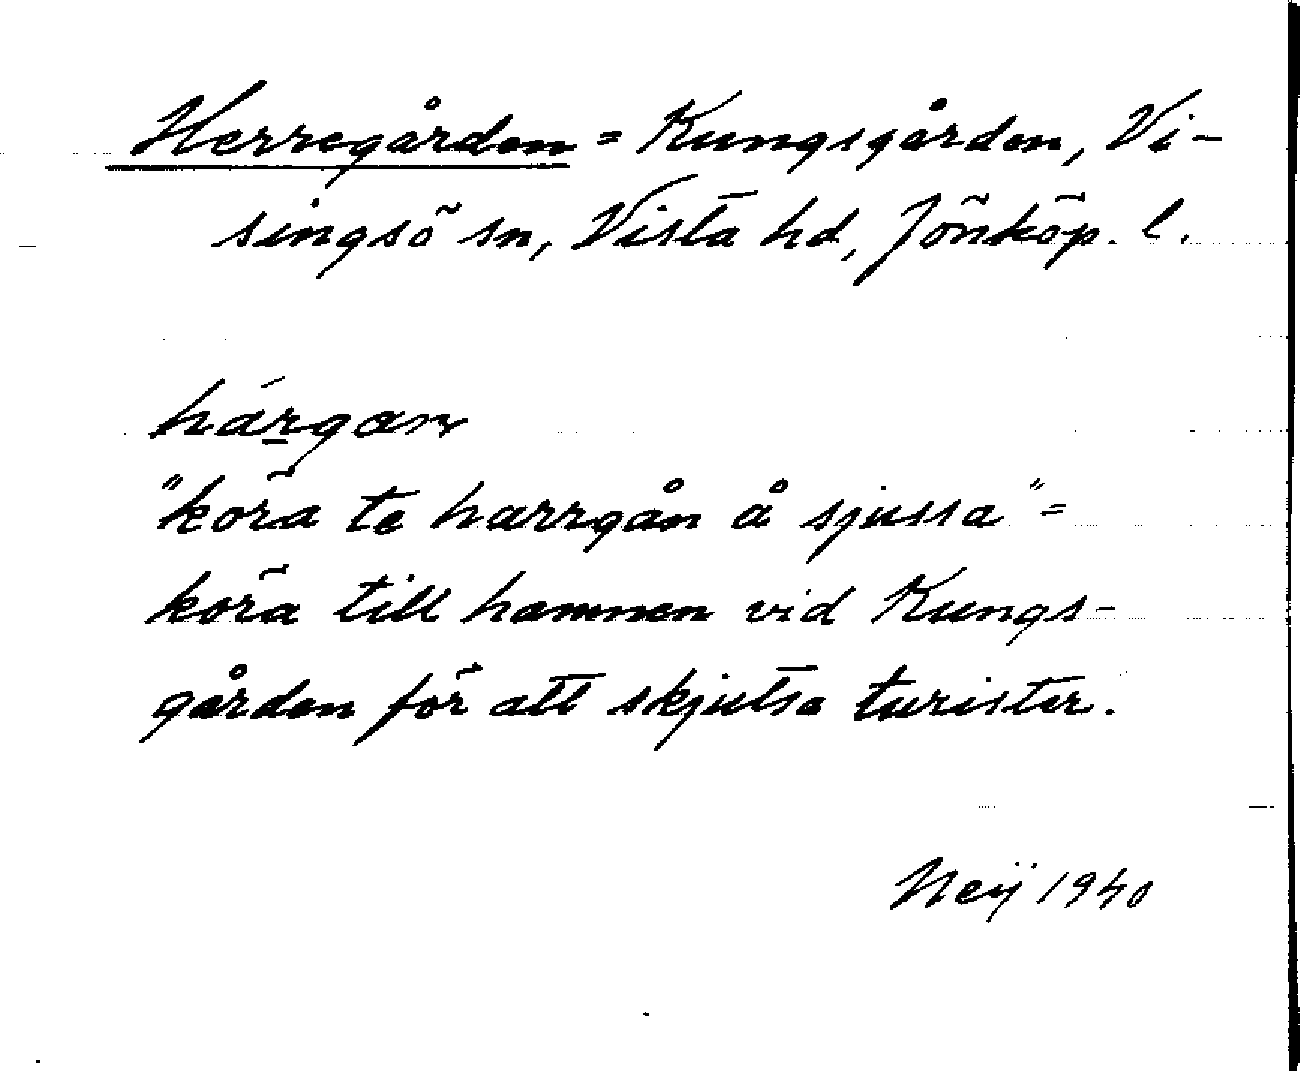 Herregården = Kungsgården, Vi-
singsö sn, Vista hd, Jönköp. l.
hárgan
"köra te harrgån å sjussa" =
köra till hamnen vid Kungs-
gården för att skjutsa turister.
Neij 1940